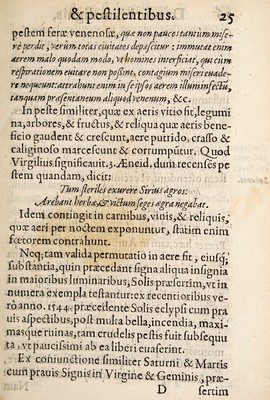 & pestilentibus. 25
pestem feræ venenosæ, quæ non paucos tantum misere
perdit, verum totas ciuitates depascitur: immutat enim
aerem malo quodam modo, vt homines interficiat, qui cum
respirationem euitare non possint, contagium miseri euade-
re nequeunt: attrahunt enim in se ipsos aerem illum infectũ,
tanquam præsentaneum aliquod venenum, &c.
In peste similiter, quæ ex aeris vitio fit, legumi
na, arbores, & fructus, & reliqua quæ aeris bene-
ficio gaudent & crescunt, aere putrido, crasso &
caliginoso marcescunt & corrumpũtur. Quod
Virgilius significauit. 3. Æneid. dum recenses pe
stem quandam, dicit:
Tum steriles exurere Sirius agros:
Arebant herbæ, & victum seges ægra negabat.
Idem contingit in carnibus, vinis, & reliquis,
quæ aeri per noctem exponuntur, statim enim
fœtorem contrahunt.
Neq; tam valida permutatio in aere fit, eiusq;
substantia, quin præcedant signa aliqua insignia
in maioribus luminaribus, Solis præsertim, vt in
numera exempla testantur: ex recentioribus ve-
rò anno. 1544. præcedente Solis eclypsi cum pra
uis aspectibus, post multa bella, incendia, maxi-
masque ruinas, tam crudelis pestis fuit subsequu
ta, vt paucissimi ab ea liberi euaserint.
Ex coniunctione similiter Saturni & Martis
cum prauis Signis in Virgine & Geminis, præ-
D sertim